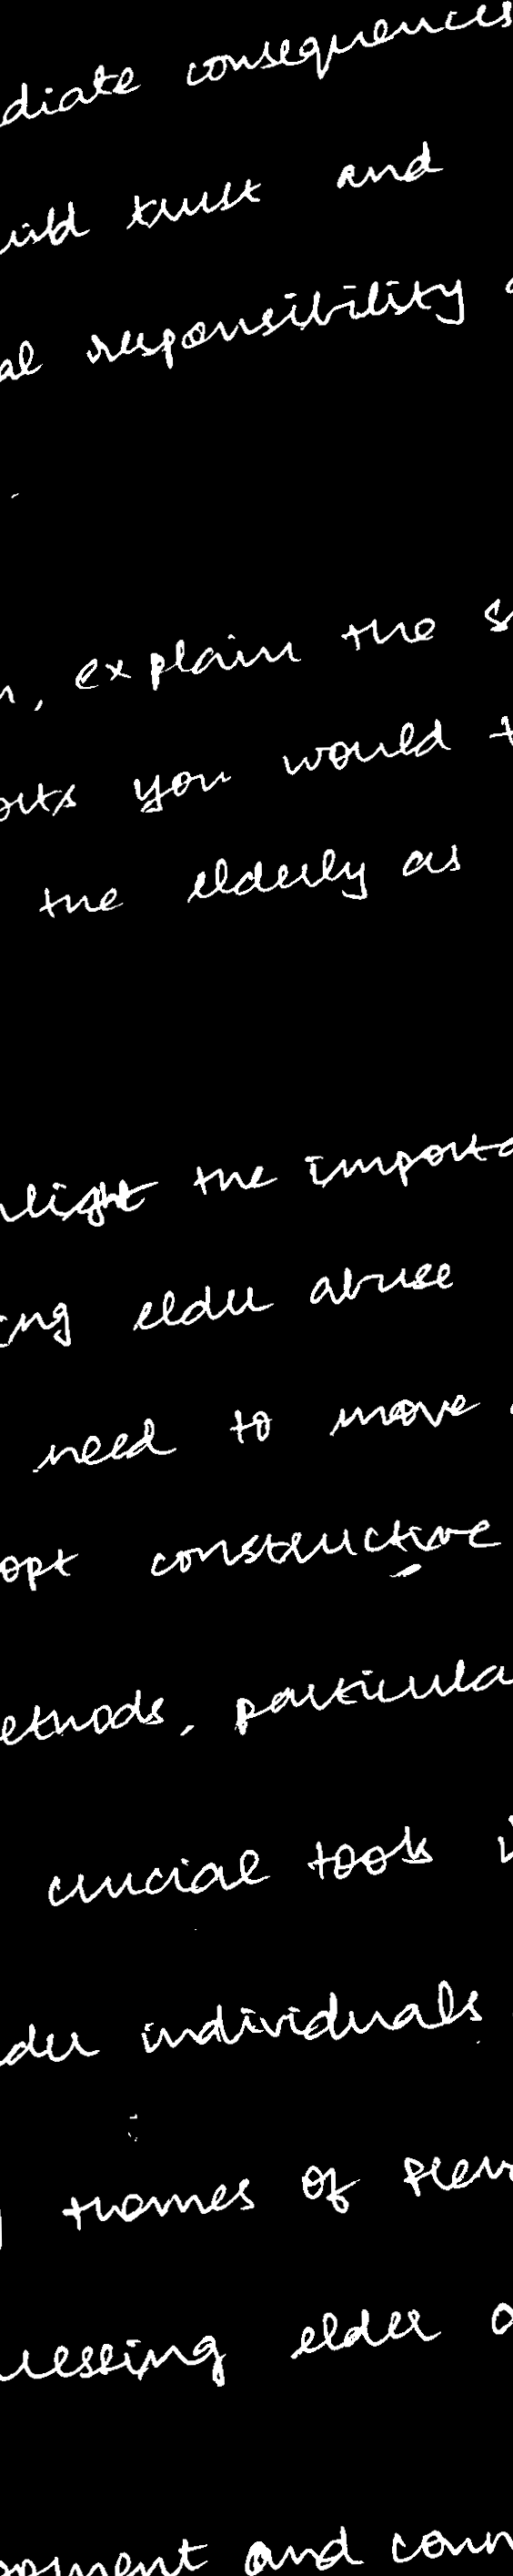 diate consequences
uild trust and
al responsibility
n, explain the s
you would t
the elderly as
light the importa
ing elder abuse
need to move
opt constructive
ethods, particula
crucial tools
der individuals
themes of
ressing elder a
opment and coun